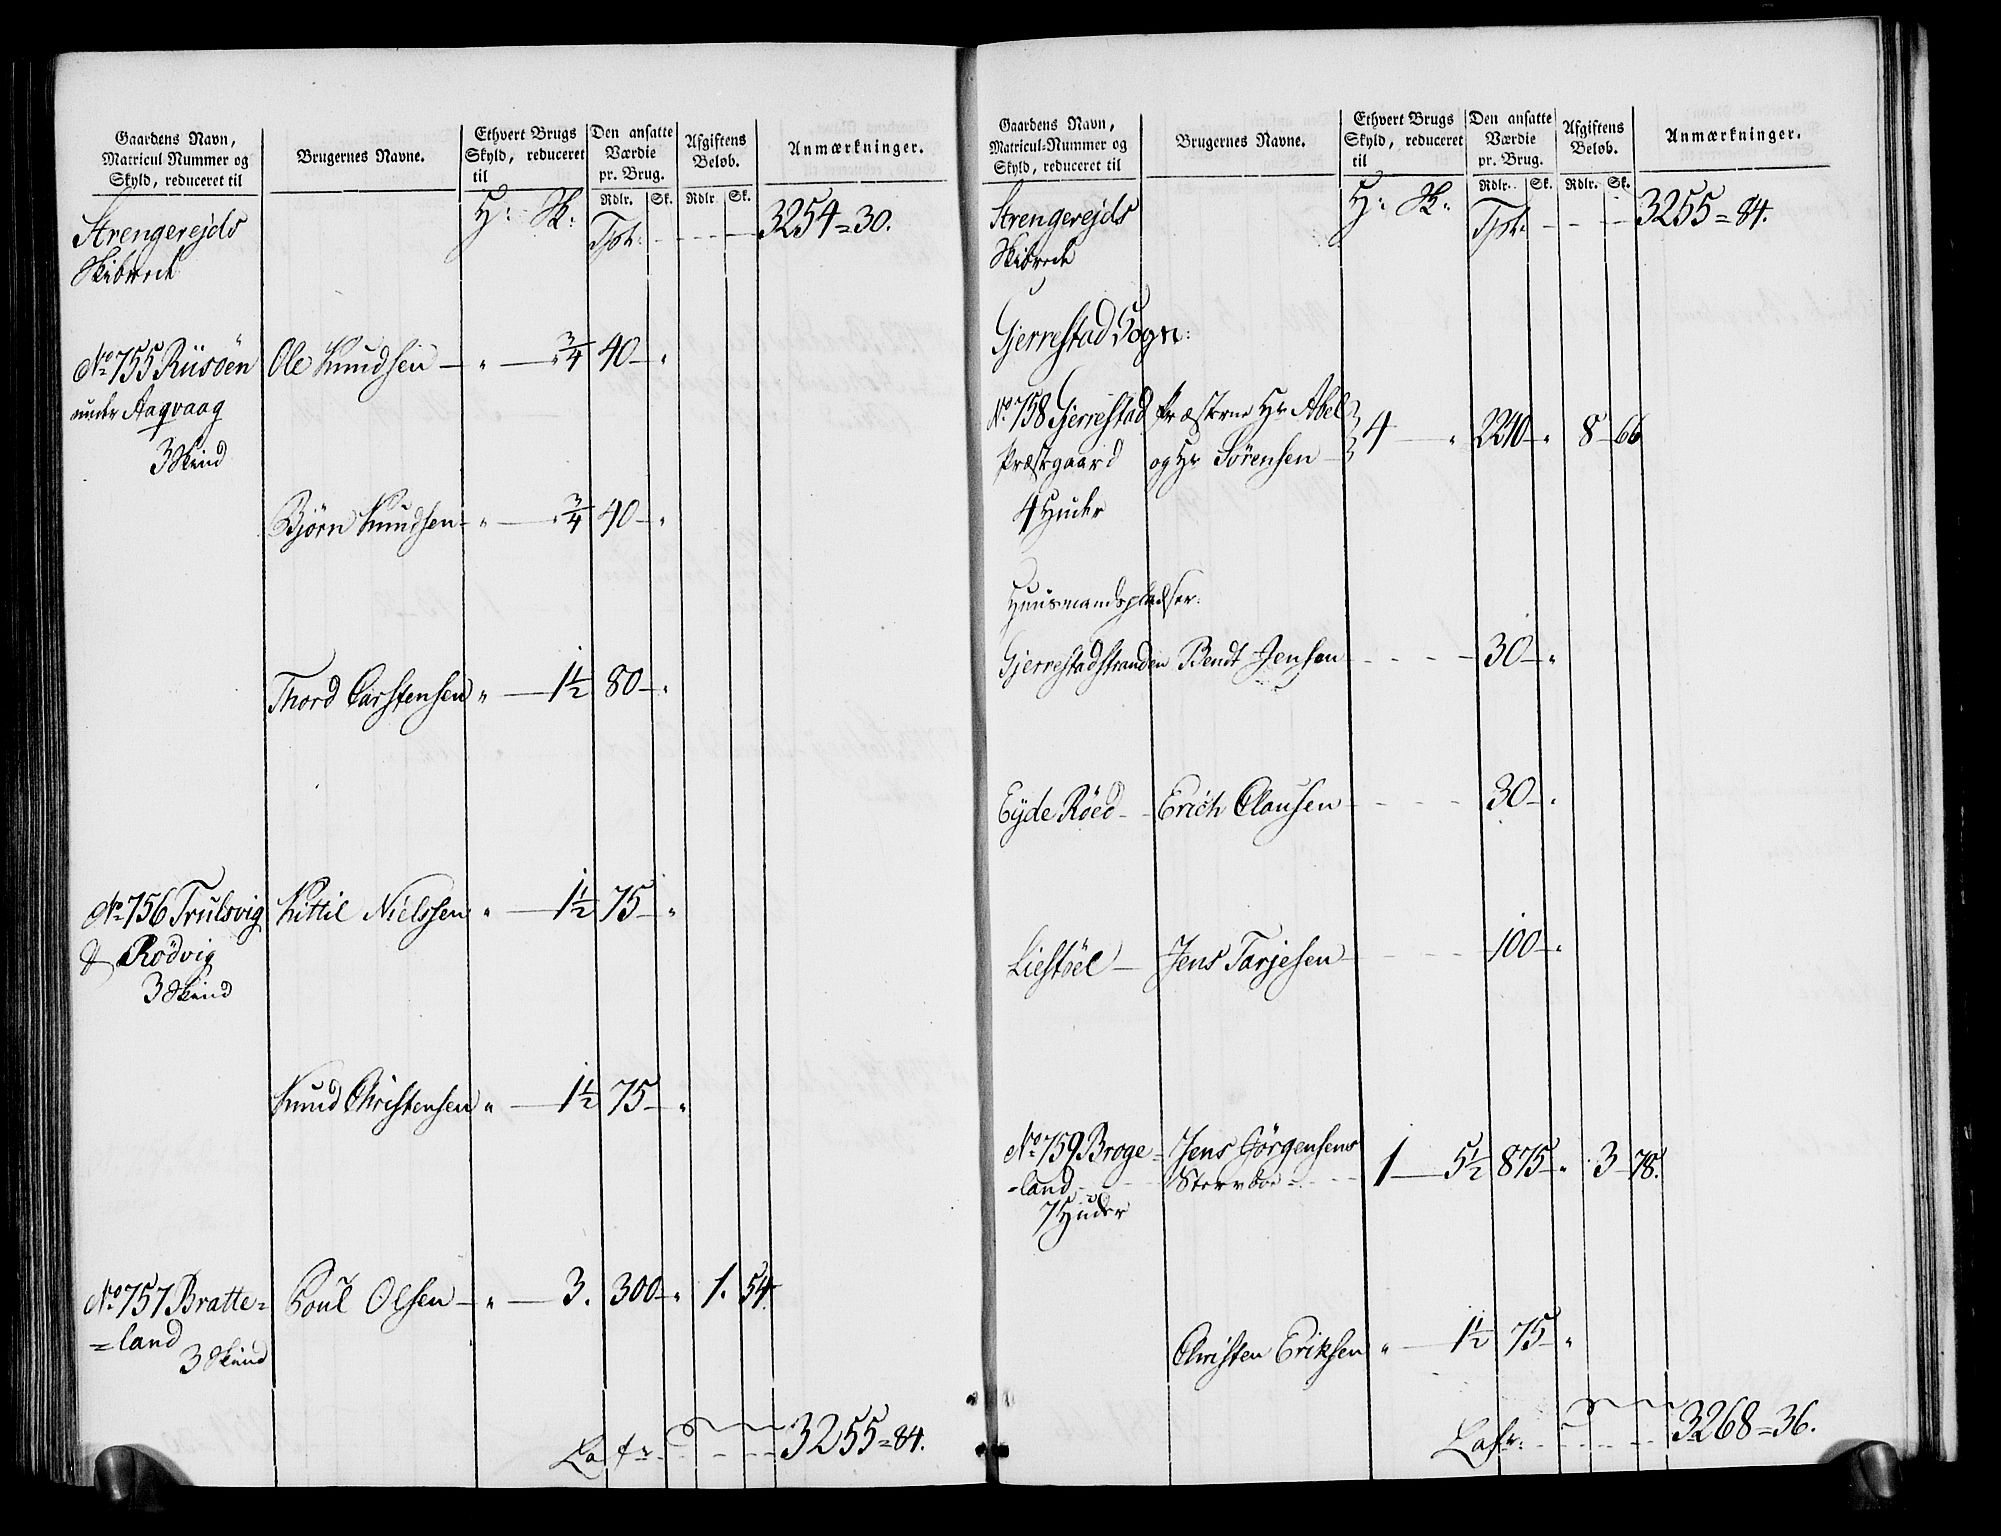 Gaardens Navn,
Matricul-Nummer og
Skyld, reduceret til
Brugernes Navne.
Ethvert Brugs
Skyld, reduceret
til
Den ansatte
Værdie
pr. Brug.
Rdlr. Sk.
Afgiftens
Beløb.
Rdlr. Sk.
Anmærkninger.
H: Sk:
Strengerejds
Skibrede
Tpt: 3254=30.
No 755 Riisöen Ole Knudsen — " — 3/4 40 — "
under Aaqvaag
3 Skind
Björn Knudsen — " — 3/4 40 — "
Thord Carstensen " — 1 1/2 80 — "
No 756 Trulsvig Kittil Nielssen " — 1 1/2 75 — "
& Rödvig
3 Skind
Knud Christensen " — 1 1/2 75 — "
No 757 Bratte= Poul Olsen — " — 3. 300 — " 1. 54.
=land
3 Skind
Lafr: 3255=84.
Gaardens Navn,
Matricul-Nummer og
Skyld, reduceret til
Brugernes Navne.
Ethvert Brugs
Skyld, reduceret
til
Den ansatte
Værdie
pr. Brug.
Rdlr. Sk.
Afgiftens
Beløb.
Rdlr. Sk.
Anmærkninger.
H: Sk:
Strengerejds
Skibrede
Tpt: 3255=84.
Gjerrestad Sogn:
No 758 Gjerrestad Præsterne Hr Abel
Præstgaard og Hr Sörensen 4 — " 2240 — " 8 — 66
4 Huder
Huusmandspladser:
Gjerrestadstranden Bendt Jensen 30 — "
Eyde Röed — Erich Clausen 30 — "
Liestöel — Jens Tarjesen 100 — "
No 759 Broge= Jens Görgensens
=land Stervboe 1 — 5 1/2 875 — " 3 — 78.
7 Huder
Christen Eriksen " — 1 1/2 75 — "
Lafr: 3268=36.